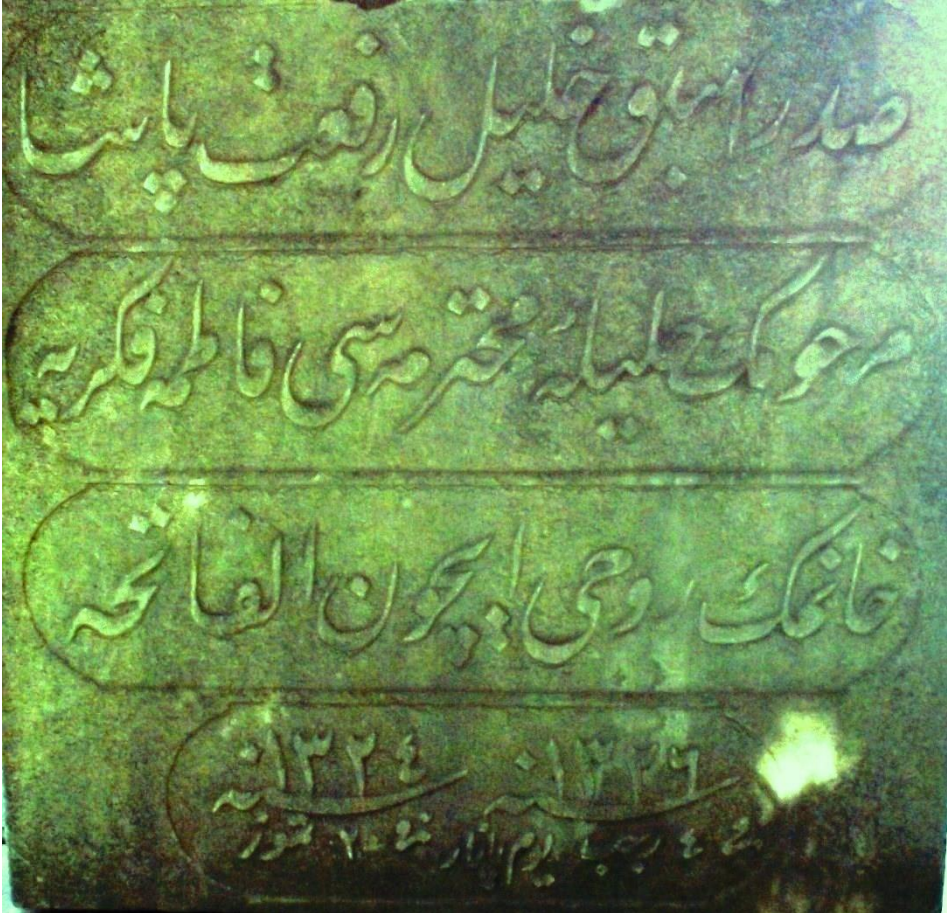 صدر اسبق خليل رفعت پاشا
مرحومك حليلهٔ محترمه سى فاطمه فكريه
خانمك روحى ايچون الفاتحه
سنه ١٣٢٦ سنه ١٣٢٤
فى ٤ رجب يوم پازار فى ٢٠ تموز